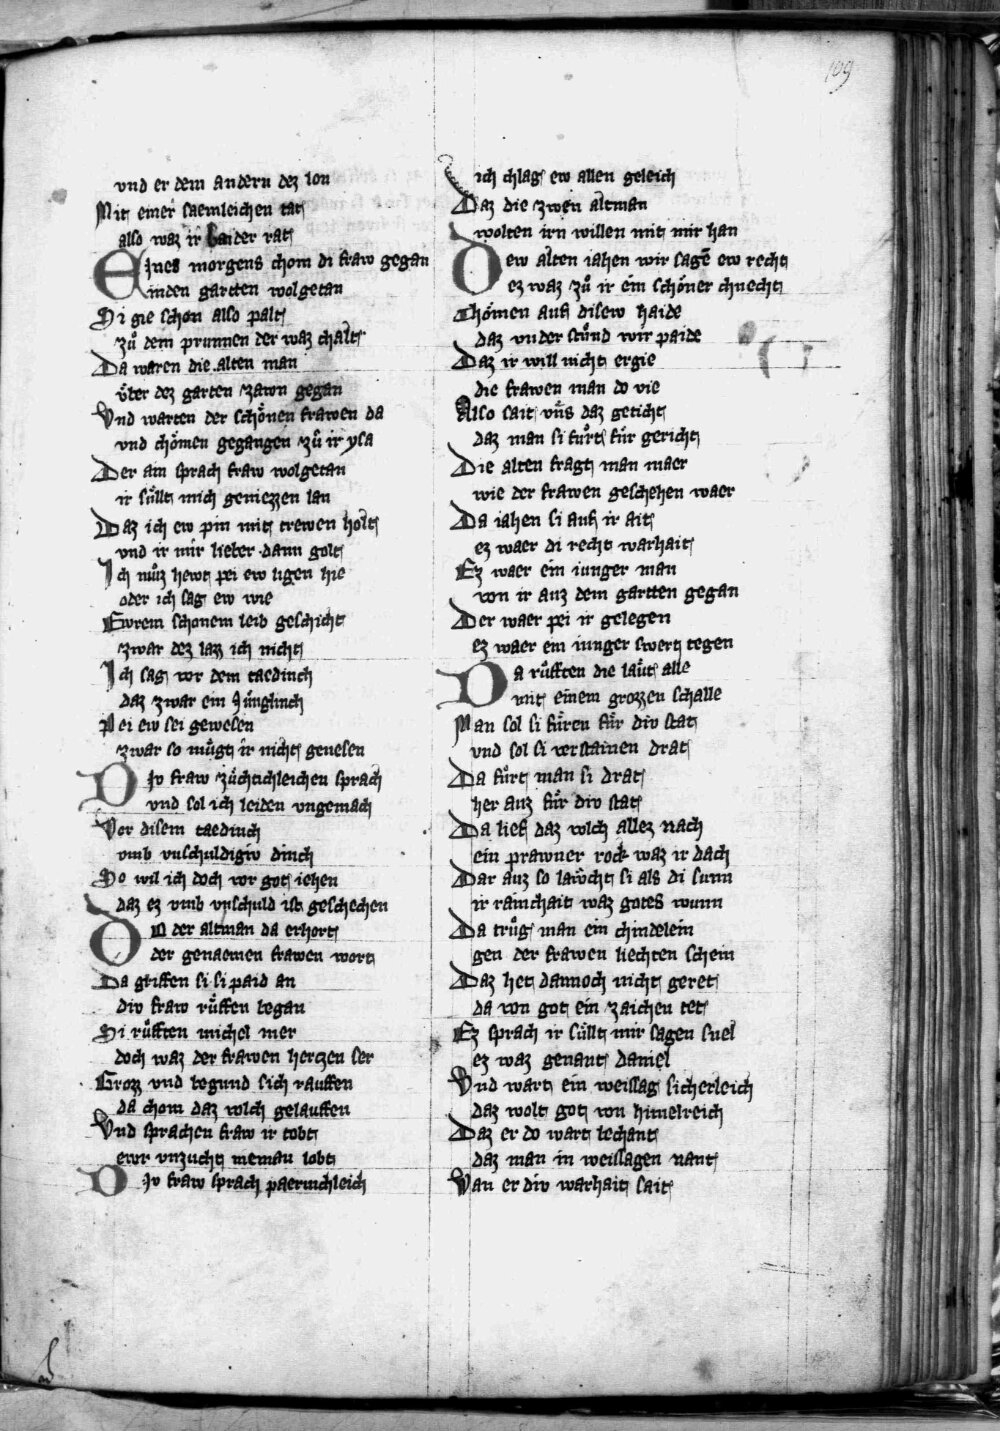 109
vnd er dem andern dez lon
Mit einer saemleichen tat
also waz ir baider rat
Eines morgens chom di fraw gegan
in den gartten wolgetan
Si gie schon also palt
zů dem prunnen der waz chalt
Da waren die alten man
vͤber dez garten zawn gegan
Vnd warten der schoͤnen frawen da
vnd choͤmen gegangen zů ir ysa
Der ain sprach fraw wolgetan
ir suͤllt mich geniezzen lan
Daz ich ew pin mit trewen holt
vnd ir mir lieber dann golt
Ich můz hewt pei ew ligen hie
oder ich sag ew wie
Ewrem schonem leib geschicht
zwar dez laz ich nicht
Ich sag vor dem taedinch
daz zwar ein Jünglinch
Pei ew sei gewesen
zwar so muͤgt ir nicht genesen
Div fraw zuͤchtichleichen sprach
vnd sol ich leiden vngemach
Vor disem taedinch
vmb vnschuldigiv dinch
So wil ich doch vor got iehen
daz ez vmb vnschuld ist geschechen
Do der altman da erhort
der genaemen frawen wort
Da griffen si si paid an
div fraw rüffen began
Si růfften michel mer
doch waz der frawen hertzen ser
Grozz vnd begund sich rauffen
da chom daz volch gelauffen
Vnd sprachen fraw ir tobt
ewr vnzucht nieman lobt
Div fraw sprach paermchleich
ich chlag ew allen geleich
Daz die zwen altman
wolten irn willen mit mir han
Dew alten iahen wir sagē ew recht
ez waz zů ir ein schoͤner chnecht
Choͤmen auf disew haide
daz vnder stůnd wir paide
Daz ir will nicht ergie
die frawen man do vie
Also sait vns daz geticht
daz man si fuͤrt für gericht
Die alten fragt man maer
wie der frawen geschehen waer
Da iahen si auf ir ait
ez waer di recht warhait
Ez waer ein iunger man
von ir auz dem gartten gegan
Der waer pei ir gelegen
ez waer ein iunger swert tegen
Da růfften die laͤut alle
mit einem grozzen schalle
Man sol si fuͤren fuͤr div stat
vnd sol si verstainen drat
Da fůrt man si drat
her auz fuͤr div stat
Da lief daz volch allez nach
ein prawner rock waz ir dach
Dar auz so lawcht si als di sunn
ir rainchait waz gotes wunn
Da trůg man ein chindelein
gen der frawen liechten schein
Daz het dannoch nicht geret
da von got ein zaichen tet
Ez sprach ir suͤllt mir sagen snel
ez waz genant daniel
Vnd wart ein weissag sicherleich
daz wolt got von himelreich
Daz er do wart bechant
daz man in weissagen nant
Wan er div warhait sait